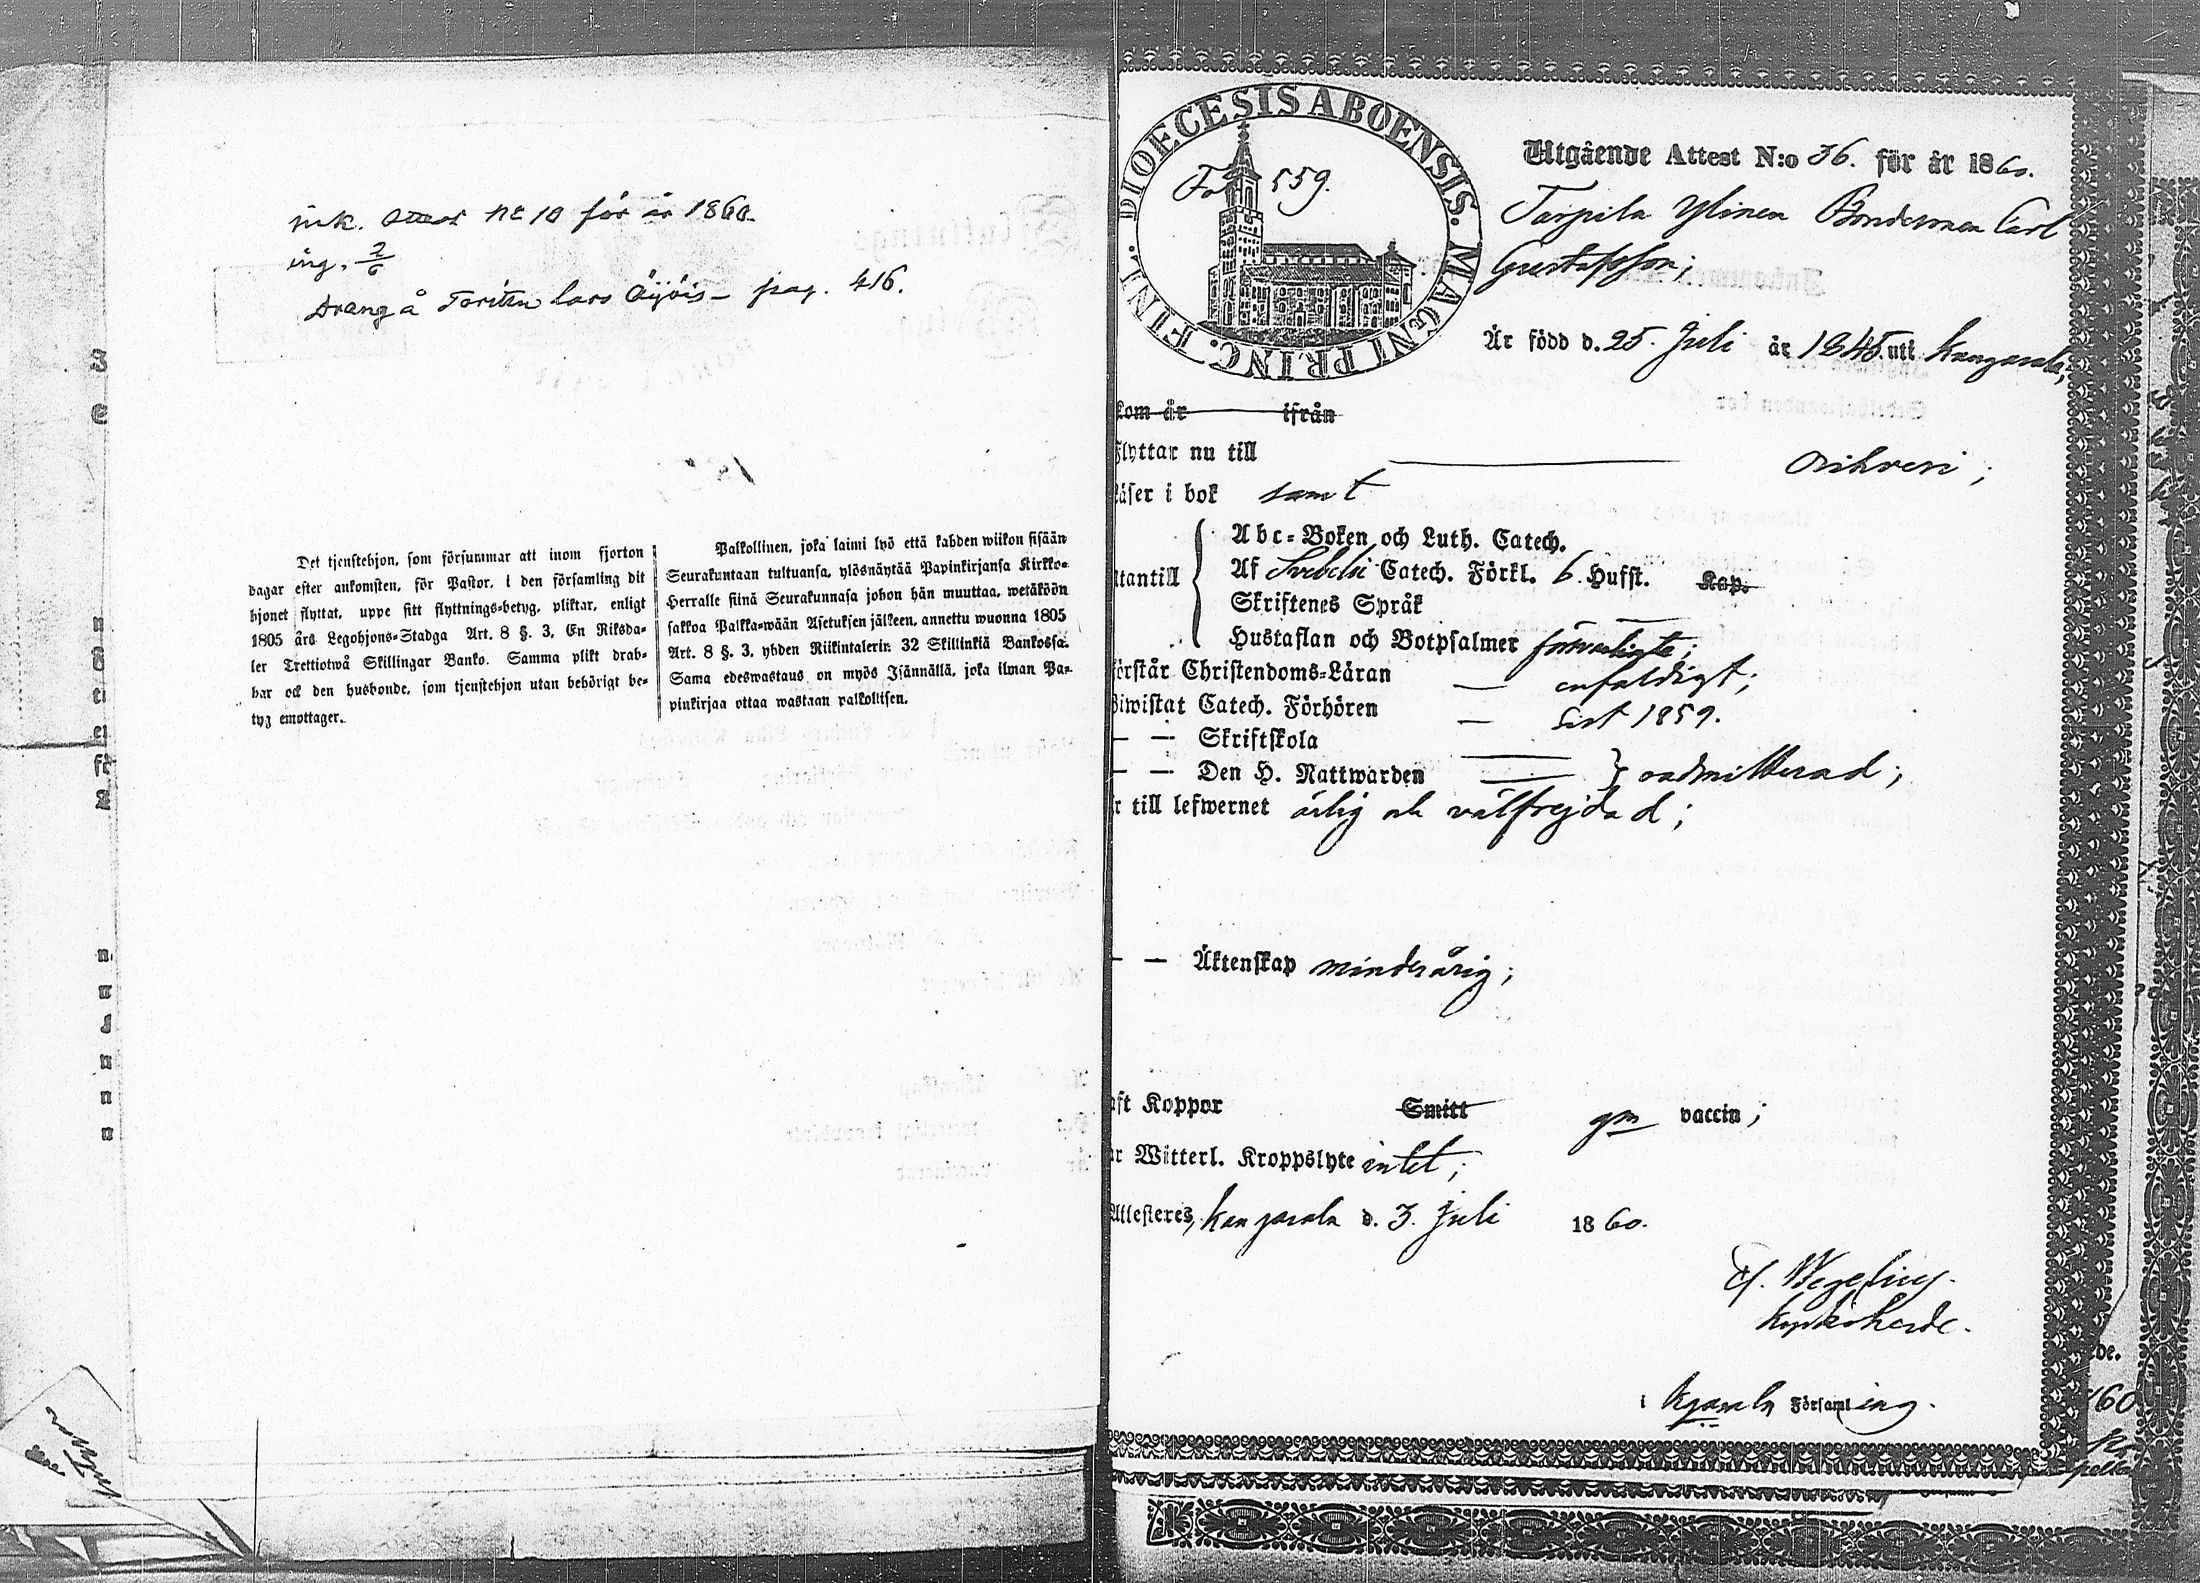 ink. Attest No 10 för år 1860.
ing. 2/6
Dräng å Toritu Lars Öijöis - pag. 416.
Det tjenstehjon, som försummar att inom fjorton
dagar efter ankomsten, för Pastor, i den församling dit
hjonet flyttat, uppe sitt flyttnings-betyg, pliktar, enligt
1805 års Legohjons-Stadga Art. 8 §. 3, En Riksda-
ler Trettiotwå Skillingar Banko. Samma plikt drab-
bar ock den husbonde, som tjenstehjon utan behörigt be-
tyg emottager.
Palkollinen, joka laimi lyö että kahden wiikon sisään
Seurakuntaan tultuansa, ylösnäytää Papinkirjansa Kirkko-
Herralle siinä Seurakunnasa johon hän muuttaa, wetäköön
sakkoa Palkka-wään Asetuksen jälkeen, annettu wuonna 1805
Art. 8 §. 3, yhden Riikintalerin 32 Skillinkiä Bankossa.
Sama edeswastaus on myös Isännällä, joka ilman Pa-
pinkirjaa ottaa wastaan palkollisen.
DIOECESIS ABOENSIS. MAGNI PRINC. FINL.
Fol 559.
Utgående Attest N:o 36. för år 1860.
Tarpila Ylinen Bondesonen Carl
Gustafsson;
Är född d. 25. Juli år 1845. uti Kangasala;
kom år ifrån
Flyttar nu till Orihvesi;
läser i bok samt
utantill
Abc-Boken och Luth. Catech.
Af Svebelii Catech. Förkl. 6. Hufst. Kap.
Skriftenes Språk
Hustaflan och Botpsalmer försvarligt;
förstår Christendoms-Läran — enfaldigt;
Biwistat Catech. Förhören — sist 1859.
— — Skriftskola
— — Den H. Nattwarden } oadmitterad;
är till lefwernet ärlig och välfrejdad;
— — Äktenskap minderårig;
haft Koppor Smitt gm vaccin;
har Witterl. Kroppslyte intet;
Attesteres, Kangasala d. 3. Juli 1860.
Wegelius.
Kyrkoherde.
i Kgasala Församling.